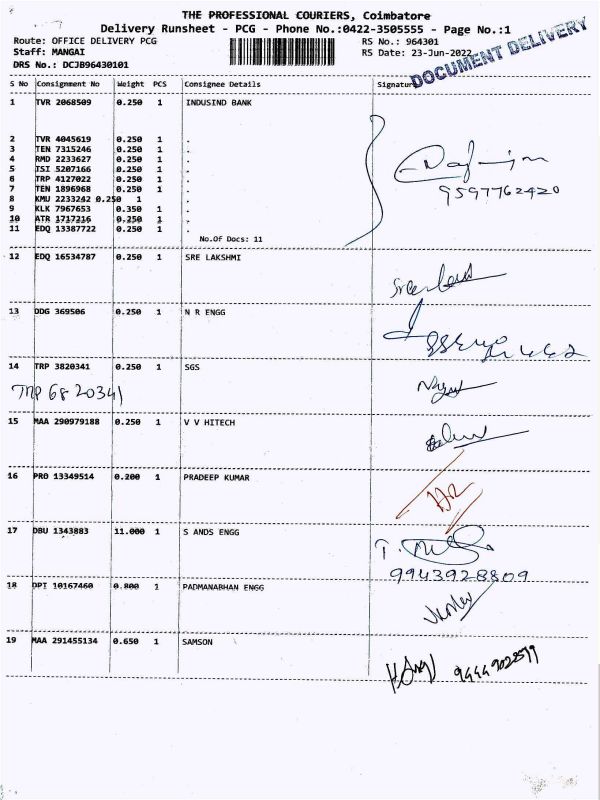 THE PROFESSIONAL COURIERS, Coimbatore
Delivery Runsheet - PCG - Phone No.:0422-3505555 - Page No.:1
Route: OFFICE DELIVERY PCG RS No.: 964301
Staff: MANGAI RS Date: 23-Jun-2022
DRS No.: DCJB96430101
DOCUMENT DELIVERY
S No Consignment No Weight PCS Consignee Details Signature
1 TVR 2068509 0.250 1 INDUSIND BANK
2 TVR 4045619 0.250 1 .
3 TEN 7315246 0.250 1 .
4 RMD 2233627 0.250 1 .
5 TSI 5207166 0.250 1 .
6 TRP 4127022 0.250 1 .
7 TEN 1896968 0.250 1 .
8 KMU 2233242 0.250 1 .
9 KLK 7967653 0.350 1 .
10 ATR 1717216 0.250 1 .
11 EDQ 13387722 0.250 1 .
9597762420
No.Of Docs: 11
12 EDQ 16534787 0.250 1 SRE LAKSHMI
13 DDG 369506 0.250 1 N R ENGG
14 TRP 3820341 0.250 1 SGS
TRP 6820341
15 MAA 290979188 0.250 1 V V HITECH
16 PRO 13349514 0.200 1 PRADEEP KUMAR
17 DBU 1343883 11.000 1 S ANDS ENGG
9943928809
18 DPI 10167460 0.800 1 PADMANABHAN ENGG
19 MAA 291455134 0.650 1 SAMSON